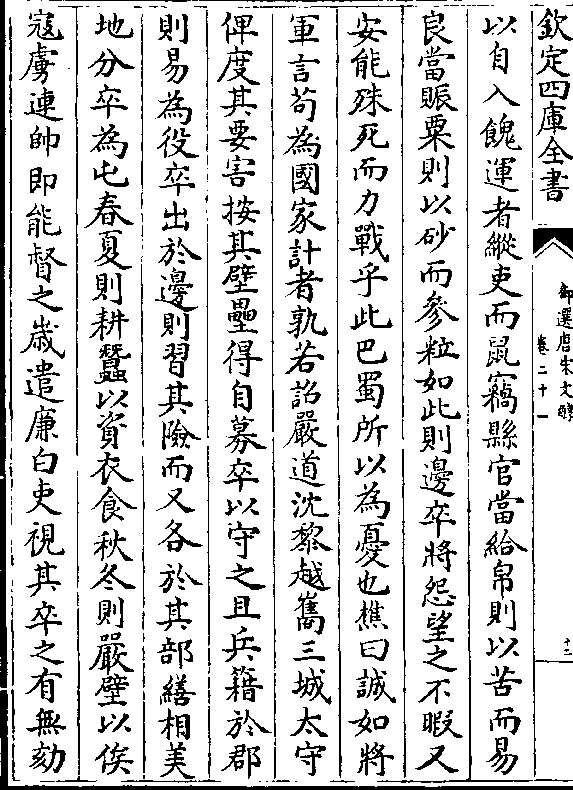 欽定四庫全書
御選唐宋文醇
卷二十一
十二
以自入餽運者縱吏而鼠竊縣官當給帛則以苦而易
良當賑粟則以砂而參粒如此則邊卒將怨望之不暇又
安能殊死而力戰乎此巴蜀所以為憂也樵曰誠如將
軍言苟為國家計者孰若詔嚴道沈黎越巂三城太守
俾度其要害按其壁壘得自募卒以守之且兵籍於郡
則易為役卒出於邊則習其險而又各於其部繕相美
地分卒為屯春夏則耕蠶以資衣食秋冬則嚴壁以俟
寇虜連帥即能督之歲遣廉白吏視其卒之有無劾